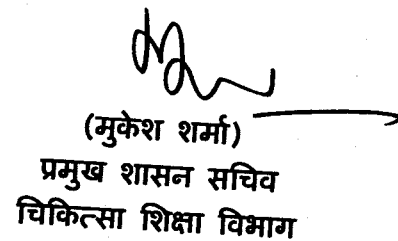 (मुकेश शर्मा)
प्रमुख शासन सचिव
चिकित्सा शिक्षा विभाग